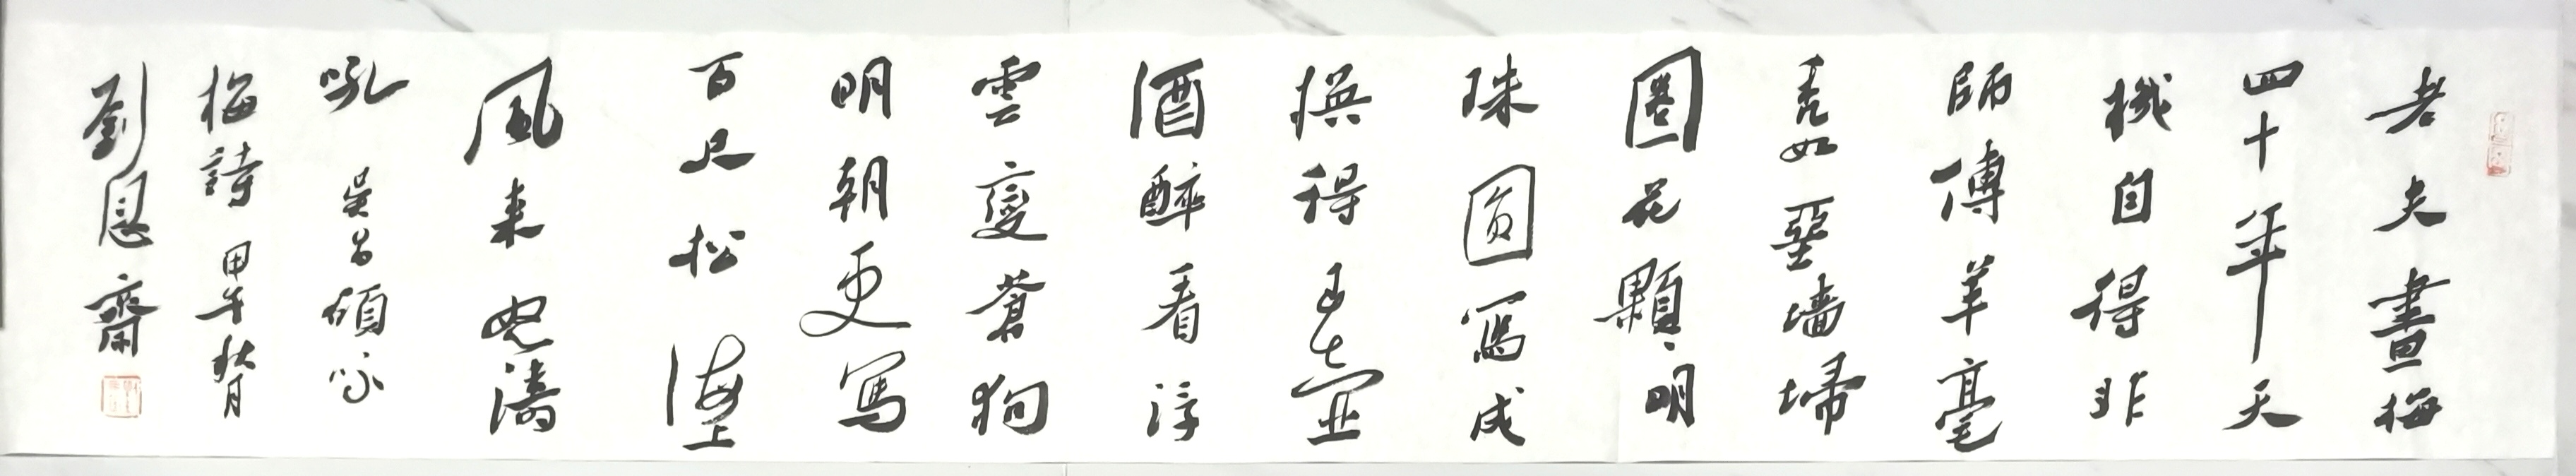 老夫畫梅
四十年天
機自得非
師傅羊毫
禿如堊墻埽
圈花顆々明
珠圓寫成
換得玉壺
酒醉看浮
雲變蒼狗
明朝更寫
百尺松海上
風来怒濤
吼 吳昌碩咏
梅詩 甲午秋月
劉恩齋